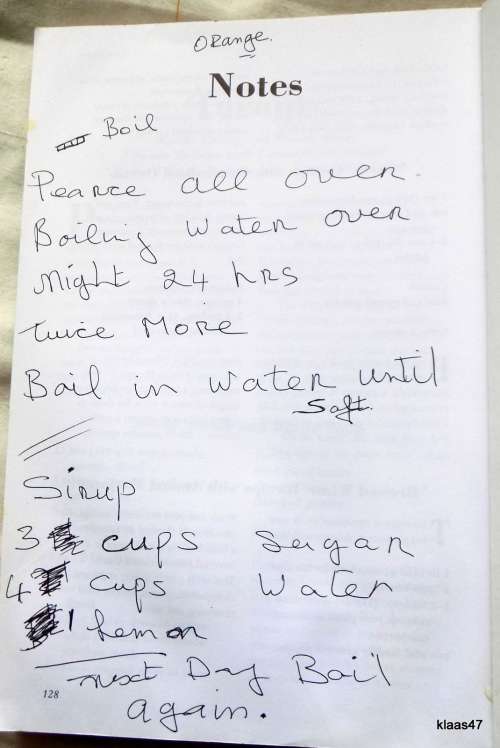 Orange.
Notes
Boil
Pearce all over.
Boiling water over
Night 24 hrs
twice More
Boil in water until
Soft.
Sirup
3 cups Sugar
4 cups Water
1 Lemon
next Day Boil
again.
128
klaas47